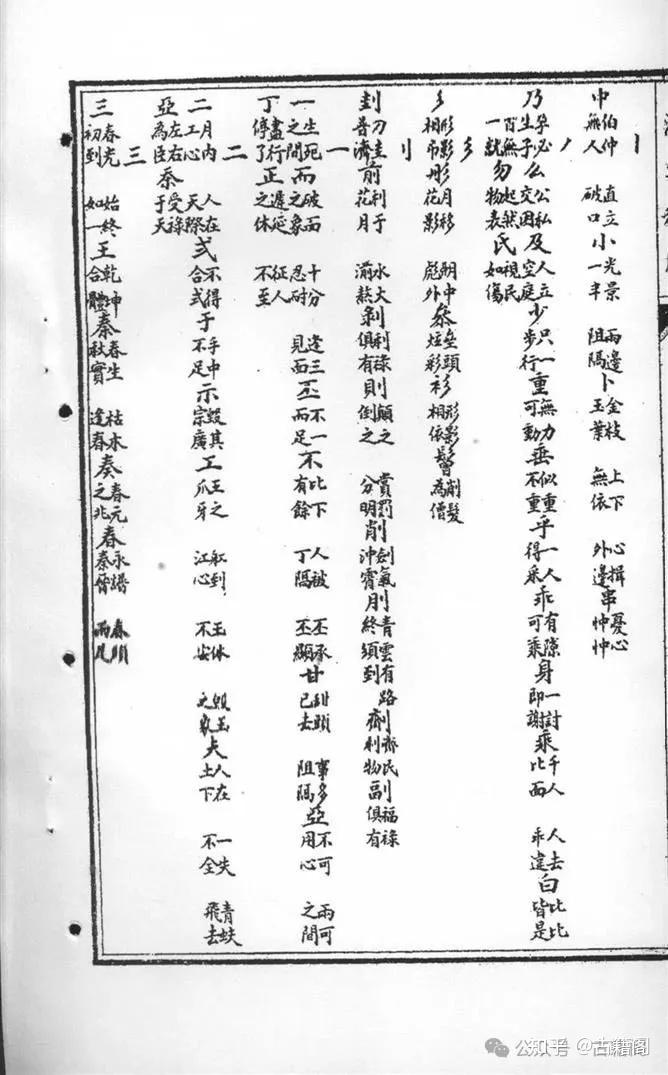 丨
中伯仲無人 直立破口小光景一半 兩邊阻隔卜金枝玉葉 上下無依 心揖外邊串憂心忡忡
丿
乃孕必生子么公私交困及人立空庭少只一步行重無力可動垂似重不重乎一人得采乖有隙可乘身一討即謝乘千人比面 人去乖違白比比皆是
百無一就勿起然物表氏視民如傷
彡
彡形影相吊彤月移花影 彪外参垒頭炫彩衫形影相依鬙削髮為僧
刂
刲刀圭普濟前利于花月 水火煎熬剝利祿俱有則顛之倒之 賞罰分明削劍氣沖霄月青雲有路終須到劑齊民利物副福祿俱有
一
一生死之間而破面之象 十分忍耐 逢三見面丕不一而足不比下有餘 人被丁隔 丕承丕顯甘甜頭已去 事多阻隔亞不可用心 兩可之間
丁盡行停了正遲延之休 征人不至
二
二月内工心 人在天際弍不得合式于手中不足示毀其宗廣工王之爪牙 紅到江心 王休不安 毀玉之象夫人在土下 一失不全 青蚨飛去
亞左右為臣泰受祿于天
三
三春光初到 始終如一王乾坤合體秦春生秋實 枯木逢春奏春元之兆春永譜秦晉 春頭雨見
公知乎 @古籍阁